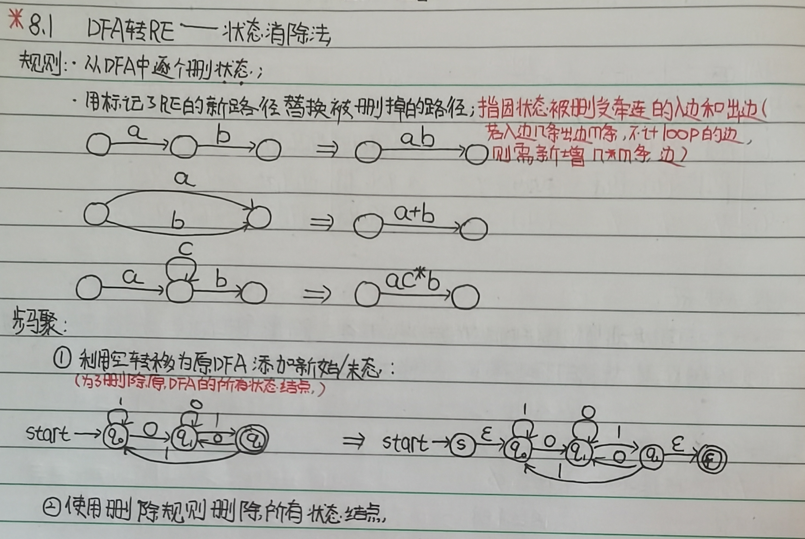 ※8.1 DFA转RE——状态消除法
规则:·从DFA中逐个删状态;
·用标记了RE的新路径替换被删掉的路径;指因状态被删受牵连的入边和出边(
若入边n条出边m条,不计loop的边,
则需新增n*m条边)
a b ⇒ ab
a
b ⇒ a+b
c
a b ⇒ ac*b
步骤:
① 利用空转移为原DFA添加新始/末态:
(为了删除原DFA的所有状态结点)
1 0 1 0
start q₀ 0 q₁ 1 0 q₁ ⇒ start s ε q₀ 0 q₁ 1 0 q₁ ε f
1 1
②使用删除规则删除所有状态结点,